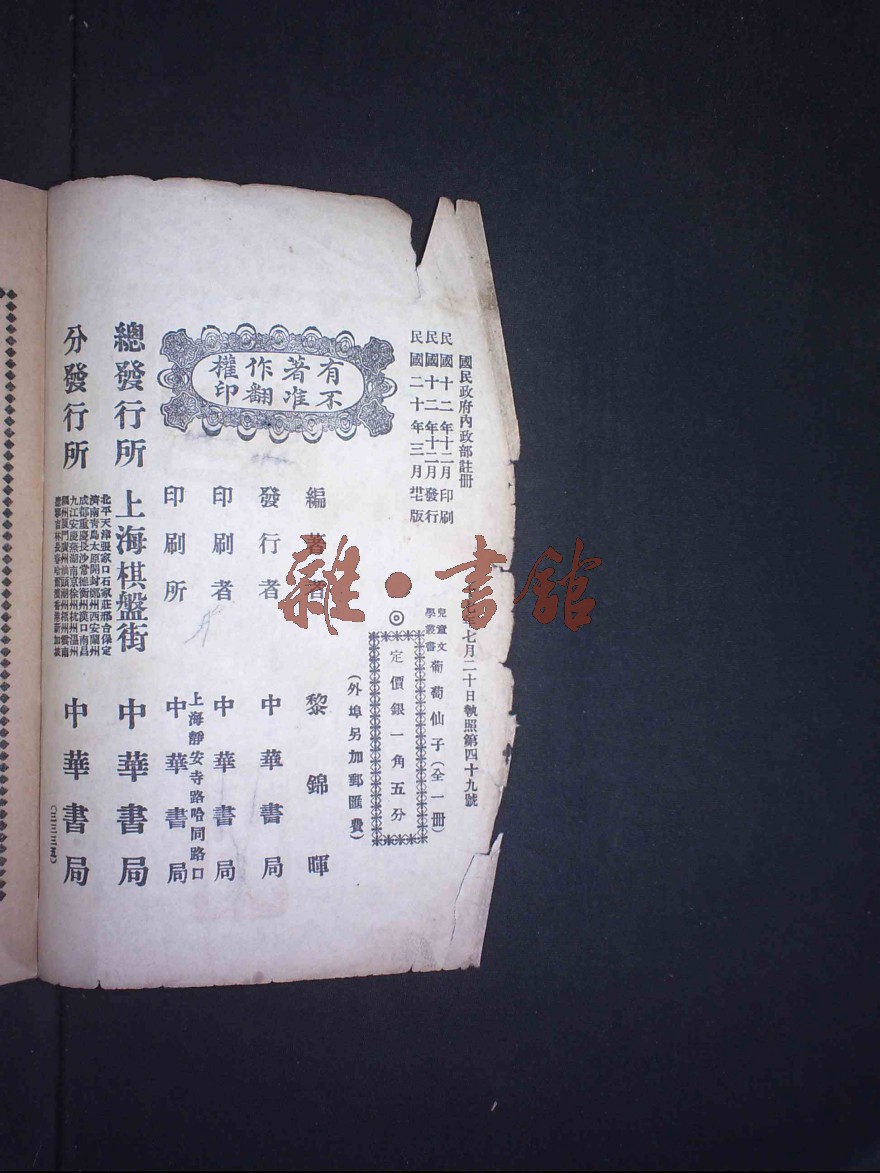 國民政府內政部註冊
七年七月二十日執照第四十九號
民國十二年十二月印刷
民國十二年十二月發行
民國二十年三月廿版
兒童文學叢書 葡萄仙子(全一冊)
◎定價銀一角五分
(外埠另加郵匯費)
有著作權
不准翻印
編著者 黎錦暉
發行者 中華書局
印刷者 中華書局
上海靜安寺路哈同路口
印刷所 中華書局
總發行所 上海棋盤街 中華書局
分發行所 中華書局
北平天津張家口石家莊邢台保定
濟南青島太原開封鄭州西安蘭州
成都重慶長沙常德衡州漢口南昌
九江安慶蕪湖南京徐州杭州溫州
雜·書館